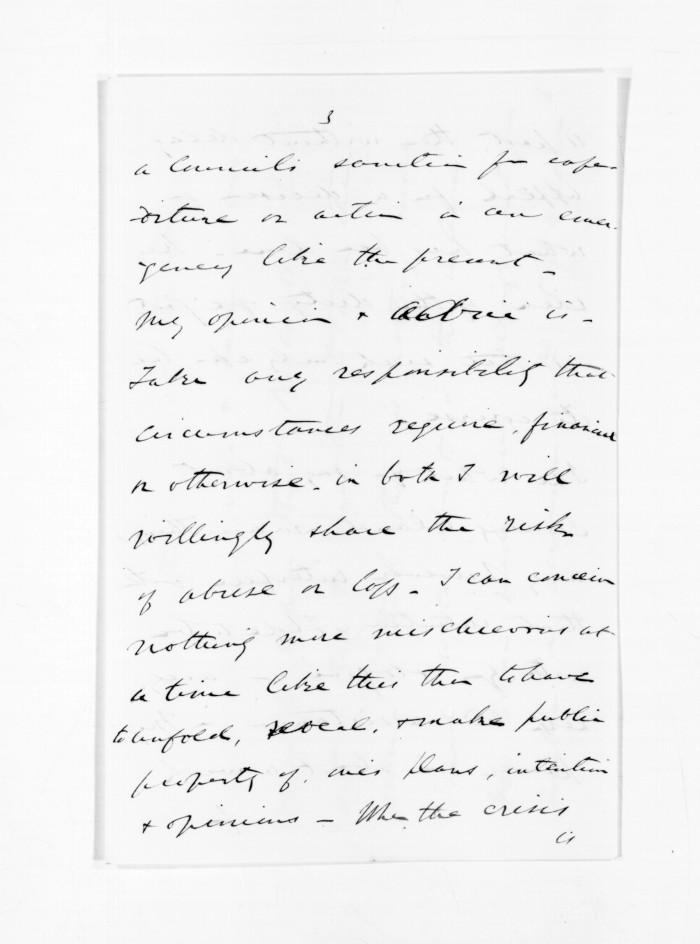 3
a Council's sanction for expen-
diture or action in an emer-
gency like the present -
My opinion & advice is -
Take any responsibility that
circumstances require, financial
or otherwise - in both I will
willingly share the risk
of abuse or loss - I can conceive
nothing more mischievous at
a time like this than to have
to unfold, reveal, & make public
property of one's plans, intention
& opinions - When the crisis
is